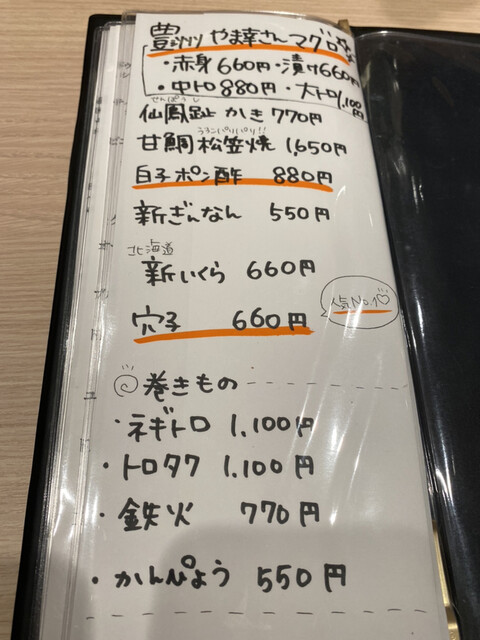 豊洲 やま幸さんマグロ
・赤身660円・漬け660円
・中トロ880円・大トロ1,100円
せんぽうし
仙鳳趾 かき 770円
うろこパリパリ!!
甘鯛 松笠焼 1,650円
白子ポン酢 880円
新ぎんなん 550円
北海道
新いくら 660円
人気No.1♡
穴子 660円
巻きもの
・ネギトロ 1,100円
・トロタク 1,100円
・鉄火 770円
・かんぴょう 550円